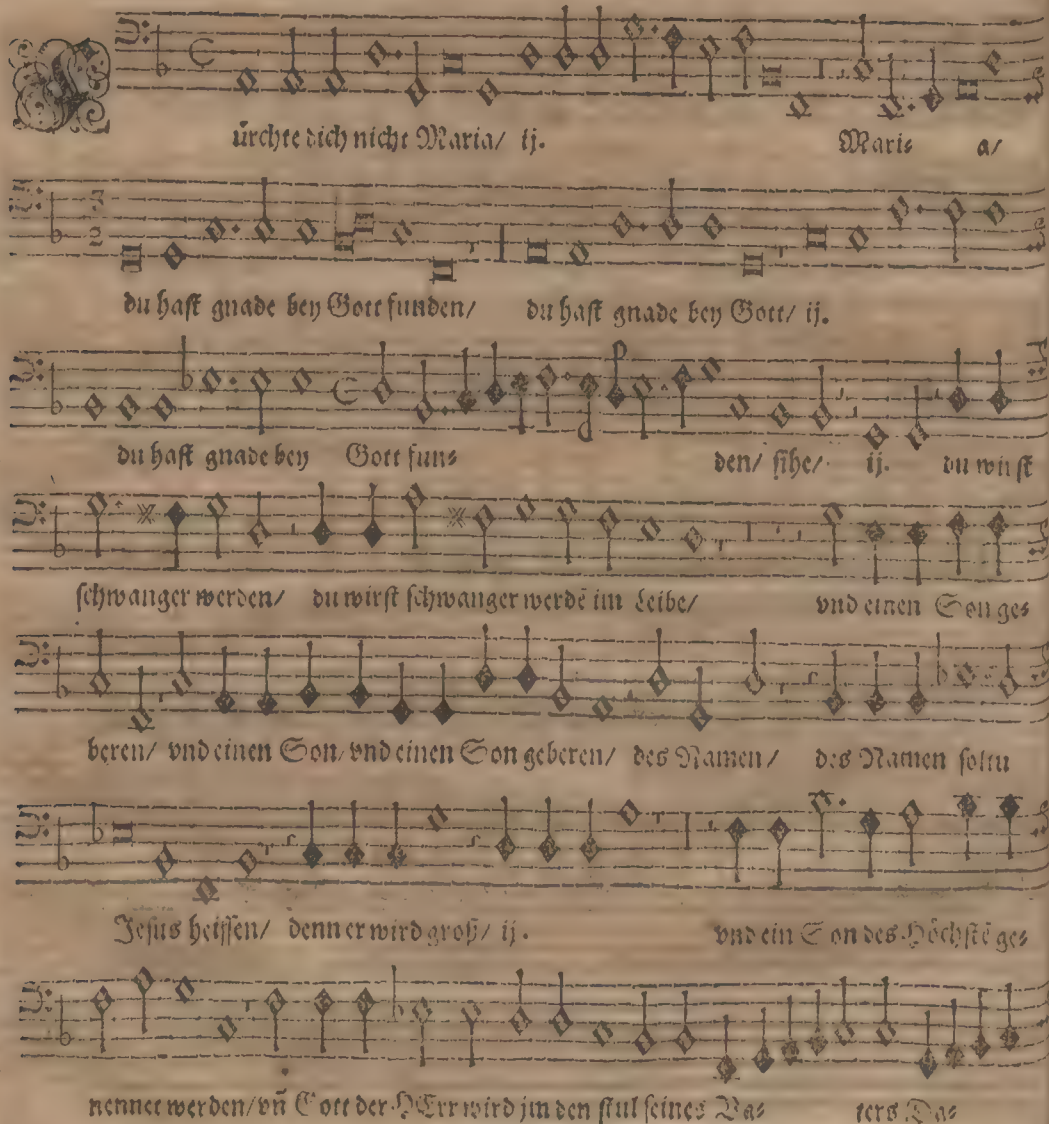 Fürchte dich nicht Maria/ ij. Maris a/
du hast gnade bey Gott funden/ du hast gnade bey Gott/ ij.
du hast gnade bey Gott funs den/ sihe/ ij. du wirst
schwanger werden/ du wirst schwanger werdē im Leibe/ vnd einen Son ges
beren/ vnd einen Son/ vnd einen Son geberen/ des Namen/ des Namen soltu
Jesus heissen/ denn er wird groß/ ij. vnd ein Son des Höchstē ges
nennet werden/ vñ Gott der HErr wird jm den stul seines Vas ters Das